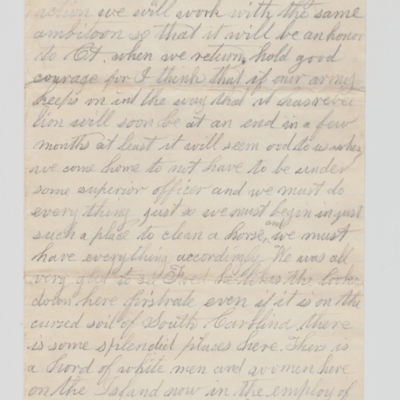 action we will work with the same
ambitoon so that it will be an honor
to Ct. when we return, hold good
courage for I think that if our army
keeps on int the way that it has rebu
lion will soon be at an end in a few
months at least it will seem odd to us when
we come home to not have to be under
some superior officer and we must do
everything just so we must begin in just
such a place to clean a horse, and we must
have everything accordingly. We was all
very glad to see he likes the looks
down here firstrate even if it is on the
cursed soil of South Carolina there
is some splendid plases here. There is
a hord of white men and women here
on the Island now in the employ of